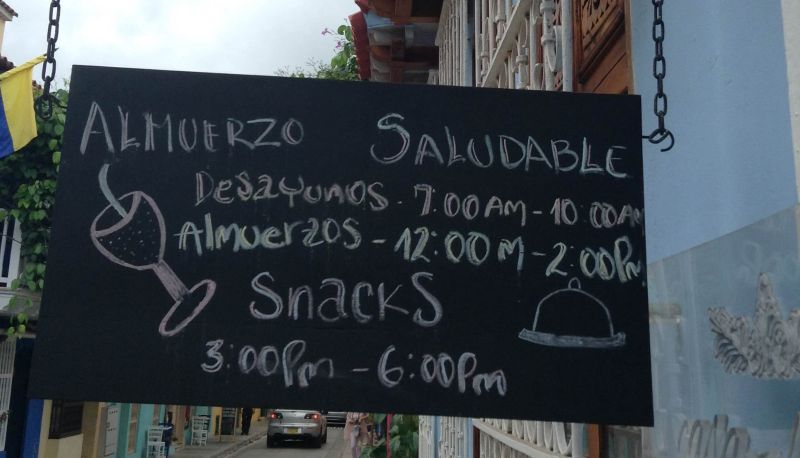 ALMUERZO SALUDABLE
Desayunos - 7:00 AM - 10:00 AM
Almuerzos - 12:00 M - 2:00 Pm
SnackS
3:00 Pm - 6:00 Pm